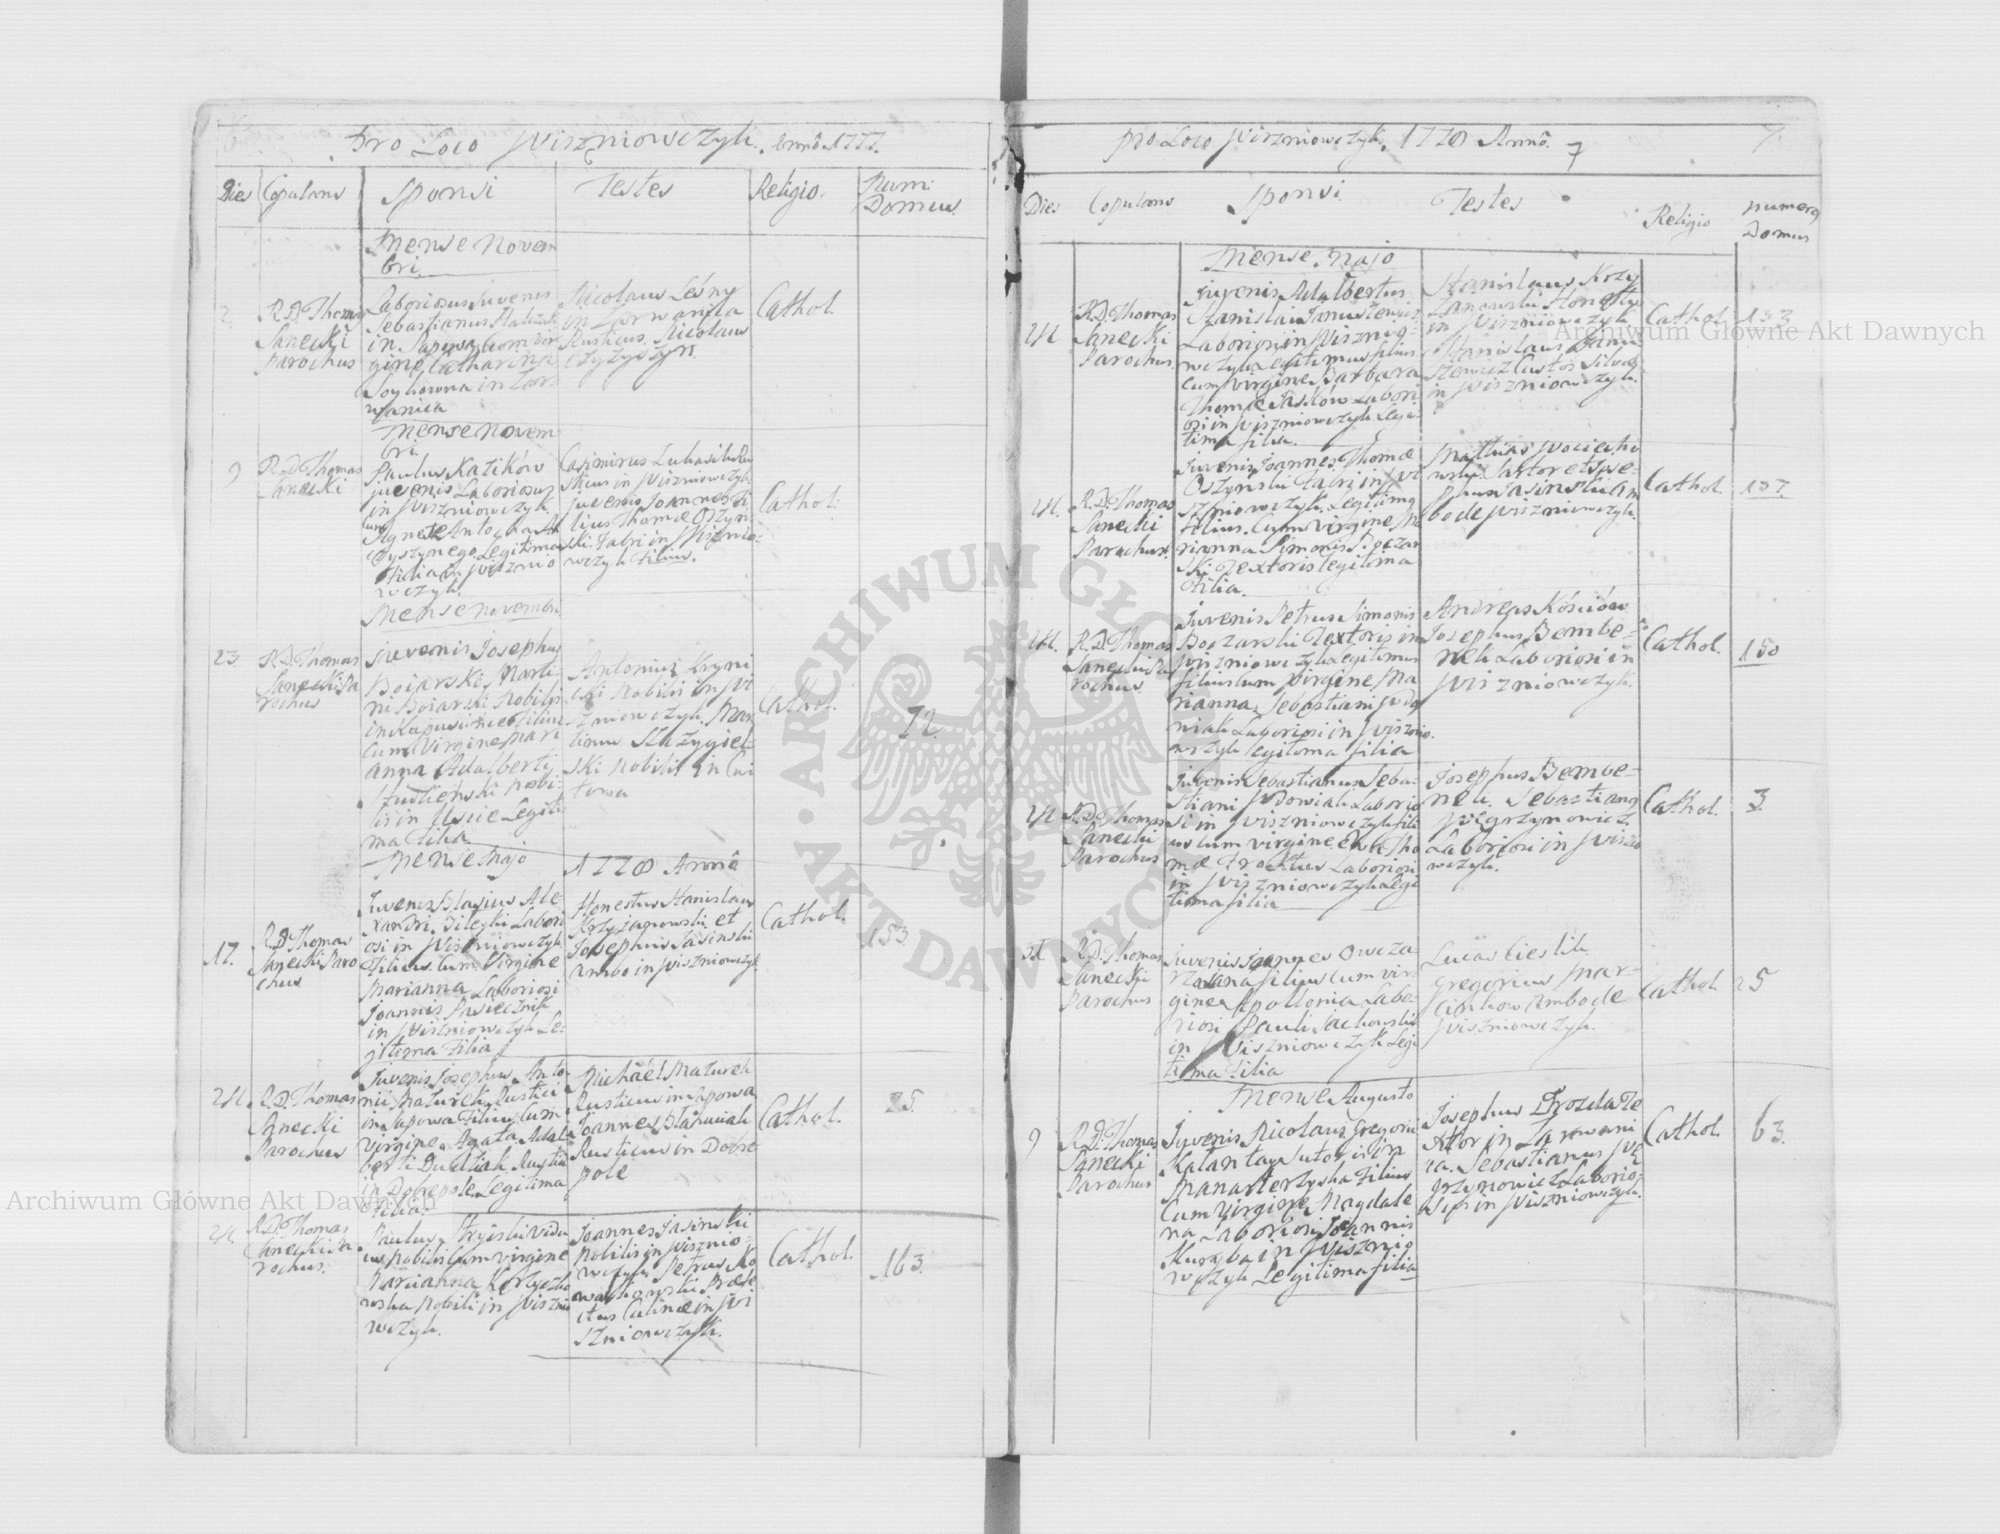 Pro Loco Wiszniowczyk. Annô 1777.
Dies Copulans Sponsi Testes Religio. Num: Domus.
Mense Novem
bri.
2. R.D. Thomas
Sanecki
Parochus
Laboriosus Juvenis
Sebastianus
in Sapowa cum vir
gine Catharina
in Zar
wanica
Nicolaus Leśny
in Zarwanica
Rusticus. Nicolaus
Cathol:
Mense Novem
bri
9 R.D. Thomas
Sanecki
Paulus Katików
juvenis Laboriosus
in Wiszniowczyk
cum
Agnete Antocha
Legitima
Filia in Wisznio
wczyk.
Casimirus Lukasik Ru
sticus in Wiszniowczyk
juvenis Joannes fi
lius Thomæ Oszyn
ski Fabri in Wisznio-
wczyk Filius.
Cathol:
Mense Novemb:
23. R.D. Thomas
Sanecki Pa
rochus
Juvenis Josephus
Boiarski, Marti-
ni Boiarski Nobilis
in Kapuscince Filius
Cum Virgine Mari
anna Adalberti
nobi
lis in Uscie Legiti
ma Filia
Antonius Kryni
cki Nobilis in Wi
szniowczyk. Mar
tinus
ski Nobilis in
Cathol.
72.
Mense Majo 1778 Annô
17. R.D. Thomas
Sanecki Paro
chus
Juvenis Blasius Ale-
xandri Bileyki Labori
osi in Wiszniowczyk
Filius. Cum Virgine
Marianna Laboriosi
Joannis Pasiecznik
in Wiszniowczyk Le-
gitima Filia
Honestus Stanislaus
Krzyżanowski et
Josephus Jasinski
ambo in Wiszniowczyk
Cathol.
153.
24. R.D. Thomas
Sanecki
Parochus
Juvenis Josephus Anto-
nii Maturek, Rustici
in Sapowa Filius Cum
Virgine Agata Adal
berti Dudziak Rustici
in Dobropole Legitima
Filia.
Michaël Maturek
Rusticus in Sapowa
Joannes
Rusticus in Dobro
pole
Cathol.
25.
24 R.D. Thomas
Sanecki Pa
rochus.
Paulus Stryiski Vidu
us Nobilis Cum virgine
Marianna
Nobili in Wisznio
wczyk.
Joannes Jasinski
Nobilis in Wisznio-
wczyk, Petrus Ko
walkowski Præfe
ctus Culinæ in Wi
szniowczyk.
Cathol.
163.
Archiwum Główne Akt Dawnych
pro Loco Wiszniowczyk. 1778 Annô. 7
Dies Copulans Sponsi. Testes Religio Numerq Domus
Mense Majo
24 R.D. Thomas
Sanecki
Parochus.
Juvenis Adalbertus
Stanislai Januszewicz
Laboriosi in Wisznio
wczyk Legitimus filius
cum virgine Barbara
Thomæ Jasków Labori
osi in Wiszniowczyk Legi
tima filia.
Stanislaus Krzy
żanowski Honestus
in Wiszniowczyk
Stanislaus Janu
szewicz Custos Silvæ
in Wiszniowczyk.
Cathol.
153
24. R.D. Thomas
Sanecki
Parochus.
Juvenis Joannes Thomæ
Oszynski Fabri in Wi
szniowczyk. Legitimq
Filius. Cum virgine Ma
rianna Simonis Boczar
ski Textoris legitima
Filia.
Mathias Wociecho
wski. Sartor et Jose-
phus Jasinski am
bo de Wiszniowczyk.
Cathol.
157.
24. R.D. Thomas
Sanecki Pa
rochus
Juvenis Petrus Simonis
Boczarski Textoris in
Wiszniowczyk Legitimus
filius Cum virgine Ma
rianna Sebastiani Wdo
wiak Laboriosi in Wisznio.
wczyk legitima filia
Andreas Kościów
Josephus Bembe-
nek Laboriosi in
Wiszniowczyk.
Cathol.
150
24 R.D. Thomas
Sanecki
Parochus
Juvenis Sebastianus Seba-
stiani Wdowiak Laborio
si in Wiszniowczyk fili
us Cum virgine Ewa Tho
mæ Laboriosi
in Wiszniowczyk Legi
tima filia
Josephus Bembe-
nek. Sebastianq
Węgrzynowicz.
Laboriosi in Wiszio
wczyk.
Cathol.
3.
31. R.D. Thomas
Sanecki
Parochus
Juvenis Joannes Owcza-
rz Jana filius Cum vir
gine Apollonia Labo-
riosi Pauli Sachowski
in Wiszniowczyk Legi
tima Filia
Lucas Cieslik.
Gregorius Mar-
cinkow Ambo de
Wiszniowczyk.
Cathol
25
Mense Augusto
9 R.D. Thomas
Sanecki
Parochus
Juvenis Nicolaus Gregorii
Katantay Sutoris in
Manasterzyska Filius
Cum Virgine Magdale
na Laboriosi Joannis
Kuryba in Wisznio
wczyk Legitima filia
Josephus Drozda Te
xtor in Zarwani
ca. Sebastianus We
grzynowicz Laborio-
si in Wiszniowczyk.
Cathol.
63.
Archiwum Główne Akt Dawnych
ARCHIWUM GŁÓWNE • AKT DAWNYCH •